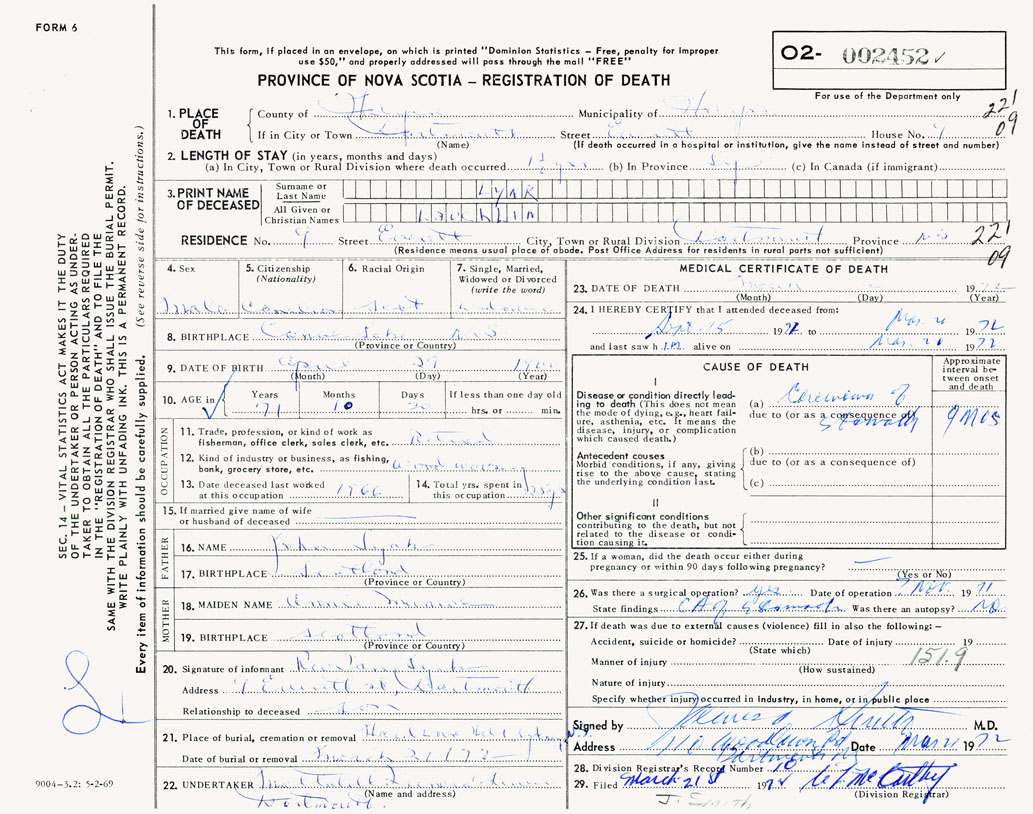 FORM 6
This form, if placed in an envelope, on which is printed "Dominion Statistics – Free, penalty for improper
use $50," and properly addressed will pass through the mail "FREE"
O2- 002452 ✓
PROVINCE OF NOVA SCOTIA – REGISTRATION OF DEATH
For use of the Department only
1. PLACE OF DEATH
County of Municipality of 221
If in City or Town Dartmouth Street House No. 9 09
(Name) (If death occurred in a hospital or institution, give the name instead of street and number)
2. LENGTH OF STAY (in years, months and days)
(a) In City, Town or Rural Division where death occurred (b) In Province (c) In Canada (if immigrant)
3. PRINT NAME OF DECEASED
Surname or Last Name LYAK
All Given or Christian Names LAUCHLIN
RESIDENCE No. 9 Street City, Town or Rural Division Dartmouth Province NS 221
(Residence means usual place of abode. Post Office Address for residents in rural parts not sufficient) 09
4. Sex 5. Citizenship (Nationality) 6. Racial Origin 7. Single, Married, Widowed or Divorced (write the word)
Male Canadian Scot
8. BIRTHPLACE N S
(Province or Country)
9. DATE OF BIRTH April 29
(Month) (Day) (Year)
10. AGE in Years Months Days If less than one day old
71 10 hrs. or min.
OCCUPATION
11. Trade, profession or kind of work as
fisherman, office clerk, sales clerk, etc. Retired
12. Kind of industry or business, as fishing,
bank, grocery store, etc. Wood working
13. Date deceased last worked
at this occupation 1966
14. Total yrs. spent in
this occupation
15. If married give name of wife
or husband of deceased
FATHER
16. NAME John
17. BIRTHPLACE Scotland
(Province or Country)
MOTHER
18. MAIDEN NAME Annie
19. BIRTHPLACE Scotland
(Province or Country)
20. Signature of informant
Address 9 St, Dartmouth
Relationship to deceased Son
21. Place of burial, cremation or removal
Date of burial or removal March 21/72
22. UNDERTAKER
(Name and address)
Dartmouth
MEDICAL CERTIFICATE OF DEATH
23. DATE OF DEATH 19
(Month) (Day) (Year)
24. I HEREBY CERTIFY that I attended deceased from:
Sept. 15 19 71 to Mar. 20 19 72
and last saw h im alive on Mar. 20 19 72
CAUSE OF DEATH
Approximate interval between onset and death
I
Disease or condition directly leading to death (This does not mean the mode of dying, e.g., heart failure, asthenia, etc. It means the disease, injury, or complication which caused death.)
(a) Carcinoma of
due to (or as a consequence of)
Stomach 9 Mos
Antecedent causes
Morbid conditions, if any, giving rise to the above cause, stating the underlying condition last.
(b)
due to (or as a consequence of)
(c)
II
Other significant conditions
contributing to the death, but not related to the disease or condition causing it.
25. If a woman, did the death occur either during
pregnancy or within 90 days following pregnancy?
(Yes or No)
26. Was there a surgical operation? yes Date of operation Nov. 19 71
State findings CA of Stomach Was there an autopsy? NO
27. If death was due to external causes (violence) fill in also the following: –
Accident, suicide or homicide? Date of injury 19
(State which)
Manner of injury 151.9
(How sustained)
Nature of injury
Specify whether injury occurred in Industry, in home, or in public place
Signed by James A M.D.
Address 110 Woodlawn Rd Date Mar 21 19 72
Dartmouth N.S.
28. Division Registrar's Record Number
29. Filed March 21st 19 72 McCarthy
(Division Registrar)
J. Smith
9004–3.2: 5-2-69
SEC. 14 – VITAL STATISTICS ACT MAKES IT THE DUTY
OF THE UNDERTAKER OR PERSON ACTING AS UNDER-
TAKER TO OBTAIN ALL THE PARTICULARS REQUIRED
IN THE "REGISTRATION OF DEATH" AND TO FILE THE
SAME WITH THE DIVISION REGISTRAR WHO SHALL ISSUE THE BURIAL PERMIT.
WRITE PLAINLY WITH UNFADING INK. THIS IS A PERMANENT RECORD.
Every item of information should be carefully supplied. (See reverse side for instructions.)